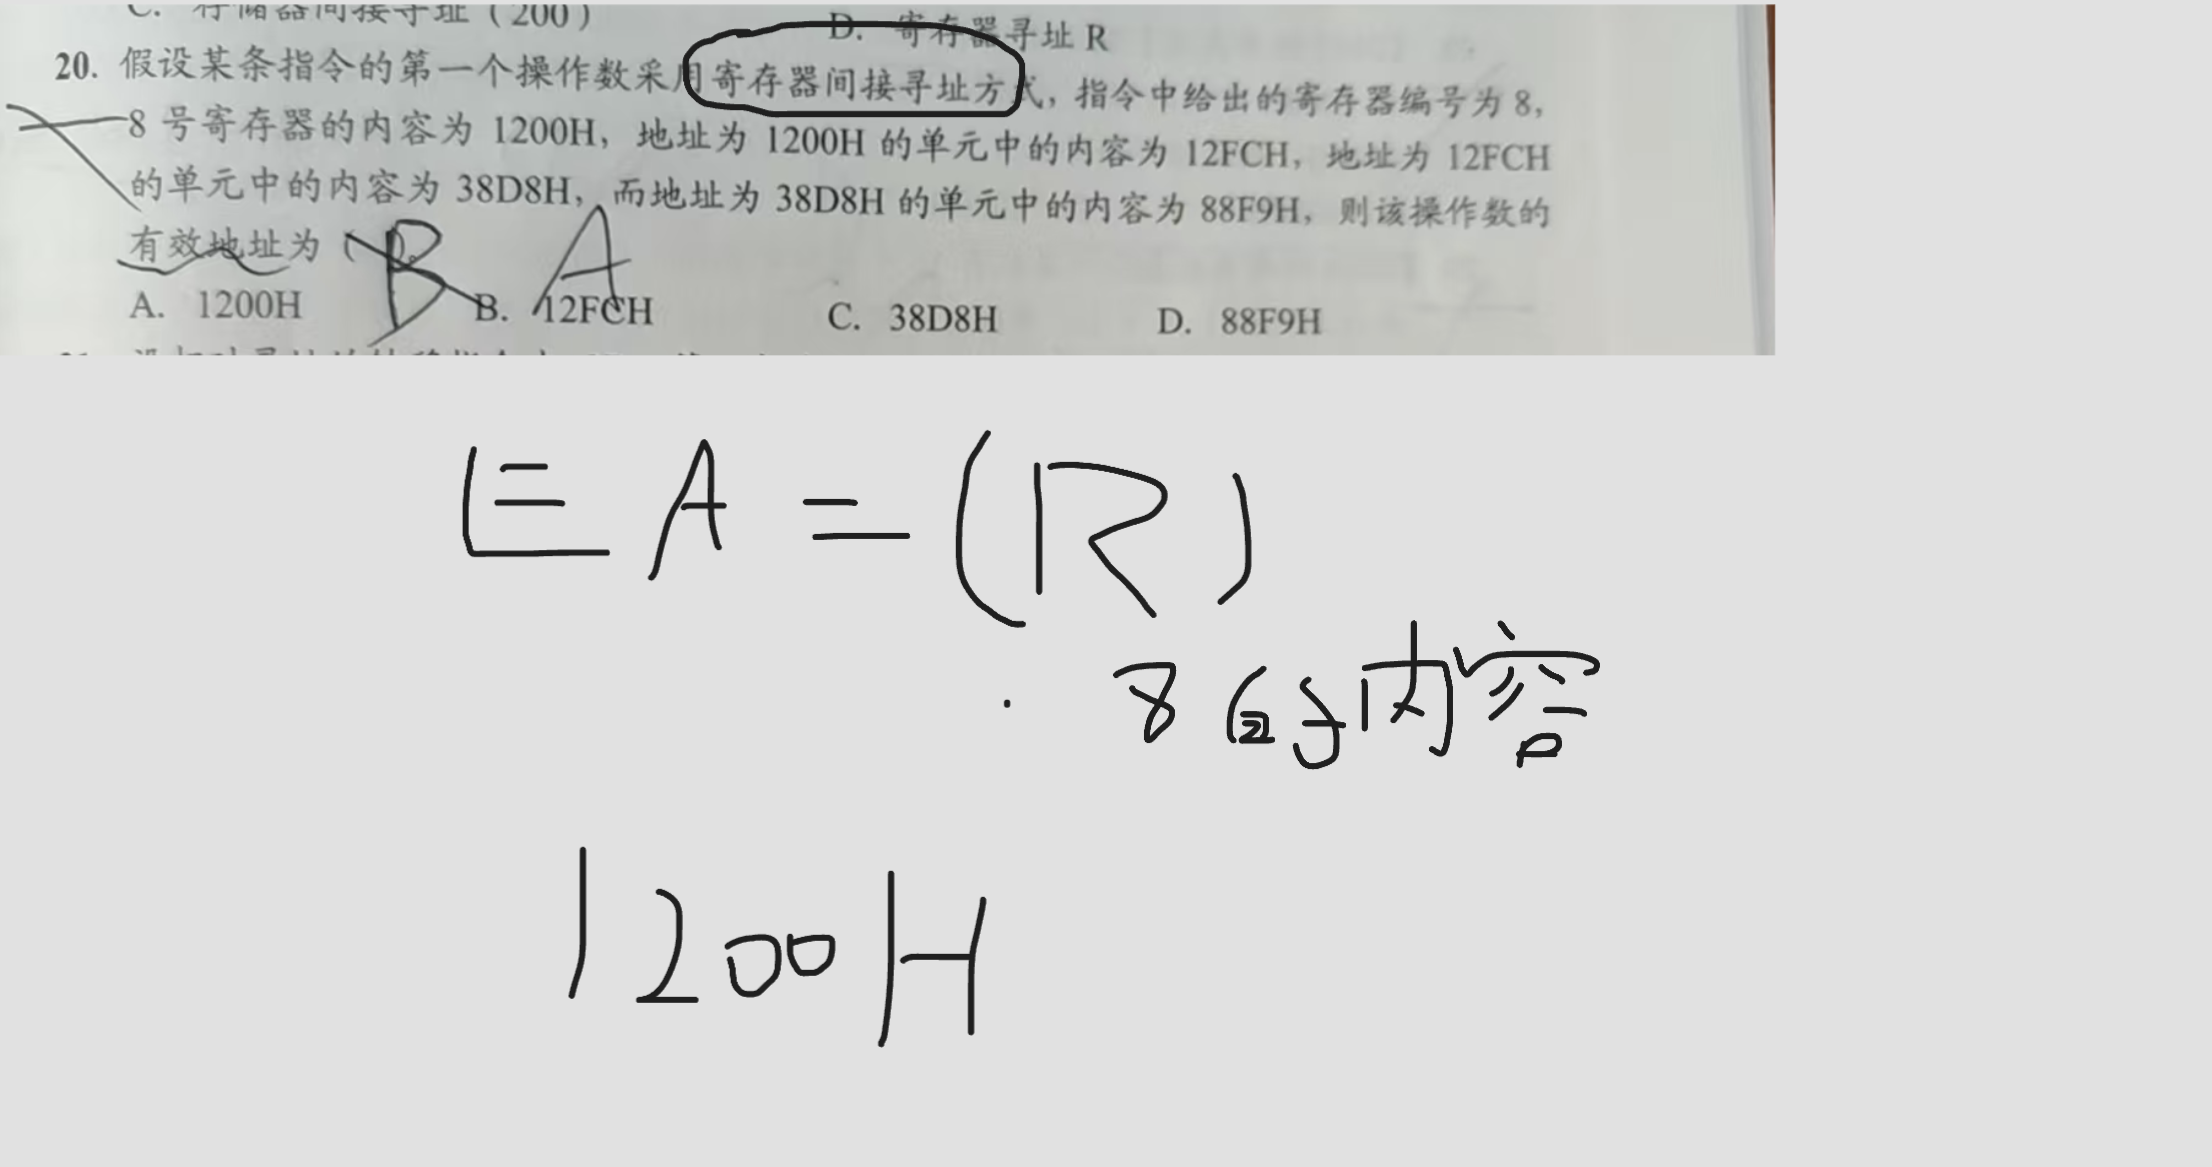 C. 存储器间接寻址（200）
D. 寄存器寻址 R
20. 假设某条指令的第一个操作数采用寄存器间接寻址方式，指令中给出的寄存器编号为 8，
8 号寄存器的内容为 1200H，地址为 1200H 的单元中的内容为 12FCH，地址为 12FCH
的单元中的内容为 38D8H，而地址为 38D8H 的单元中的内容为 88F9H，则该操作数的
有效地址为（ ）。 B A
A. 1200H B. 12FCH C. 38D8H D. 88F9H
EA=(R)
8的内容
1200H